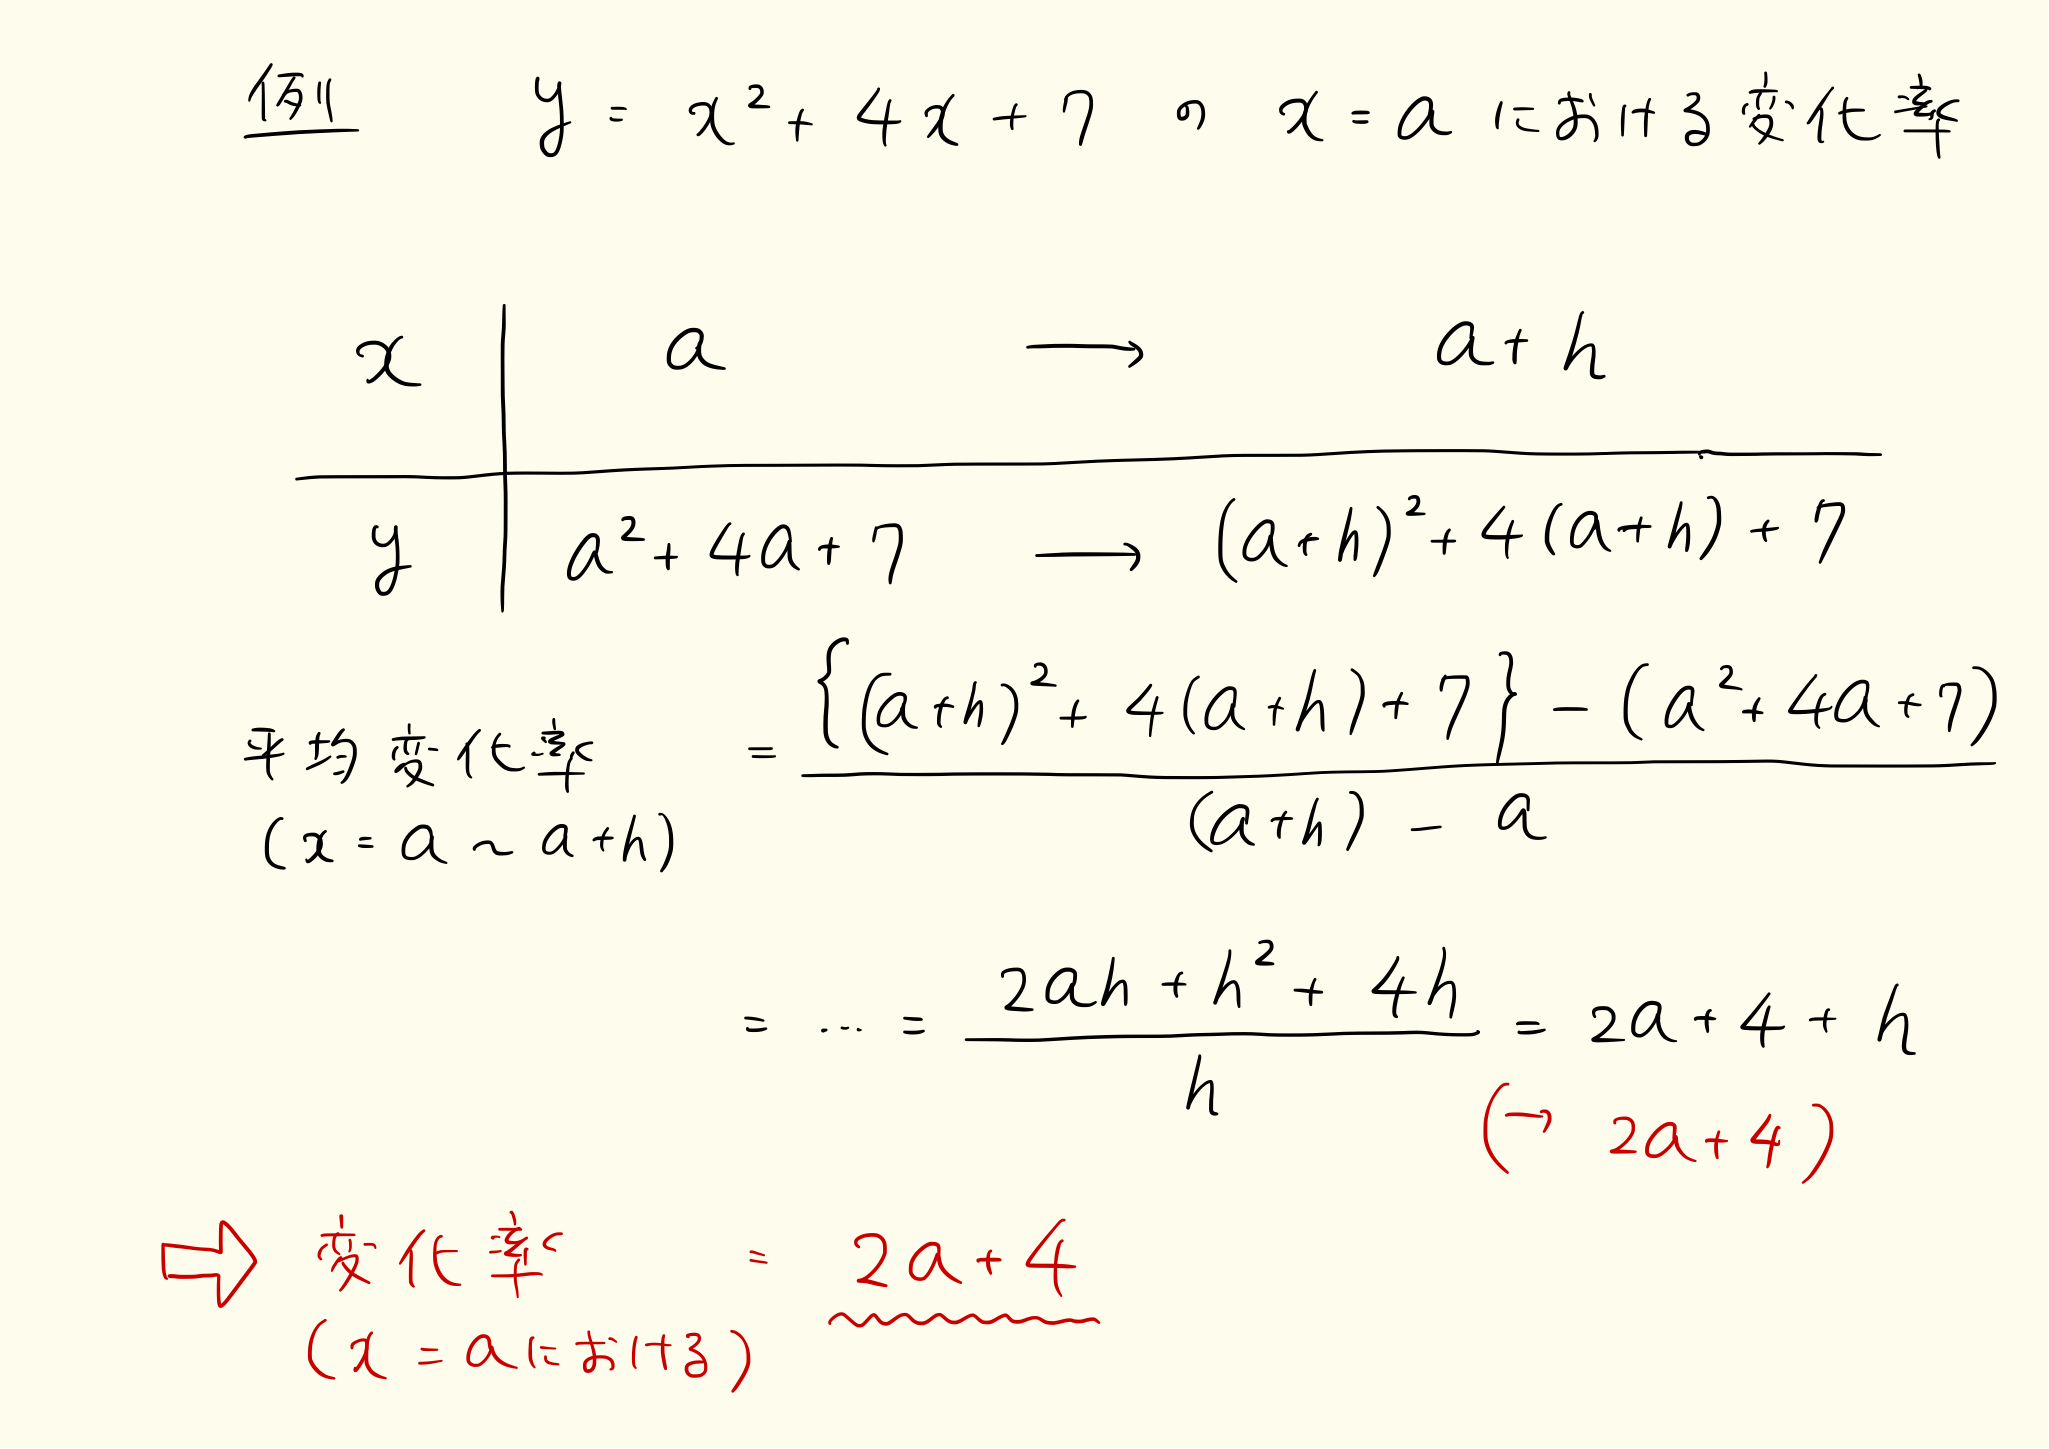 例 y = x² + 4x + 7 の x = a における変化率
x a → a + h
y a² + 4a + 7 → (a+h)² + 4(a+h) + 7
平均変化率 = {(a+h)² + 4(a+h) + 7} − (a² + 4a + 7)
(x = a ~ a+h) (a+h) − a
= ... = 2ah + h² + 4h = 2a + 4 + h
h
(→ 2a + 4)
⇨ 変化率 = 2a + 4
(x = a における)